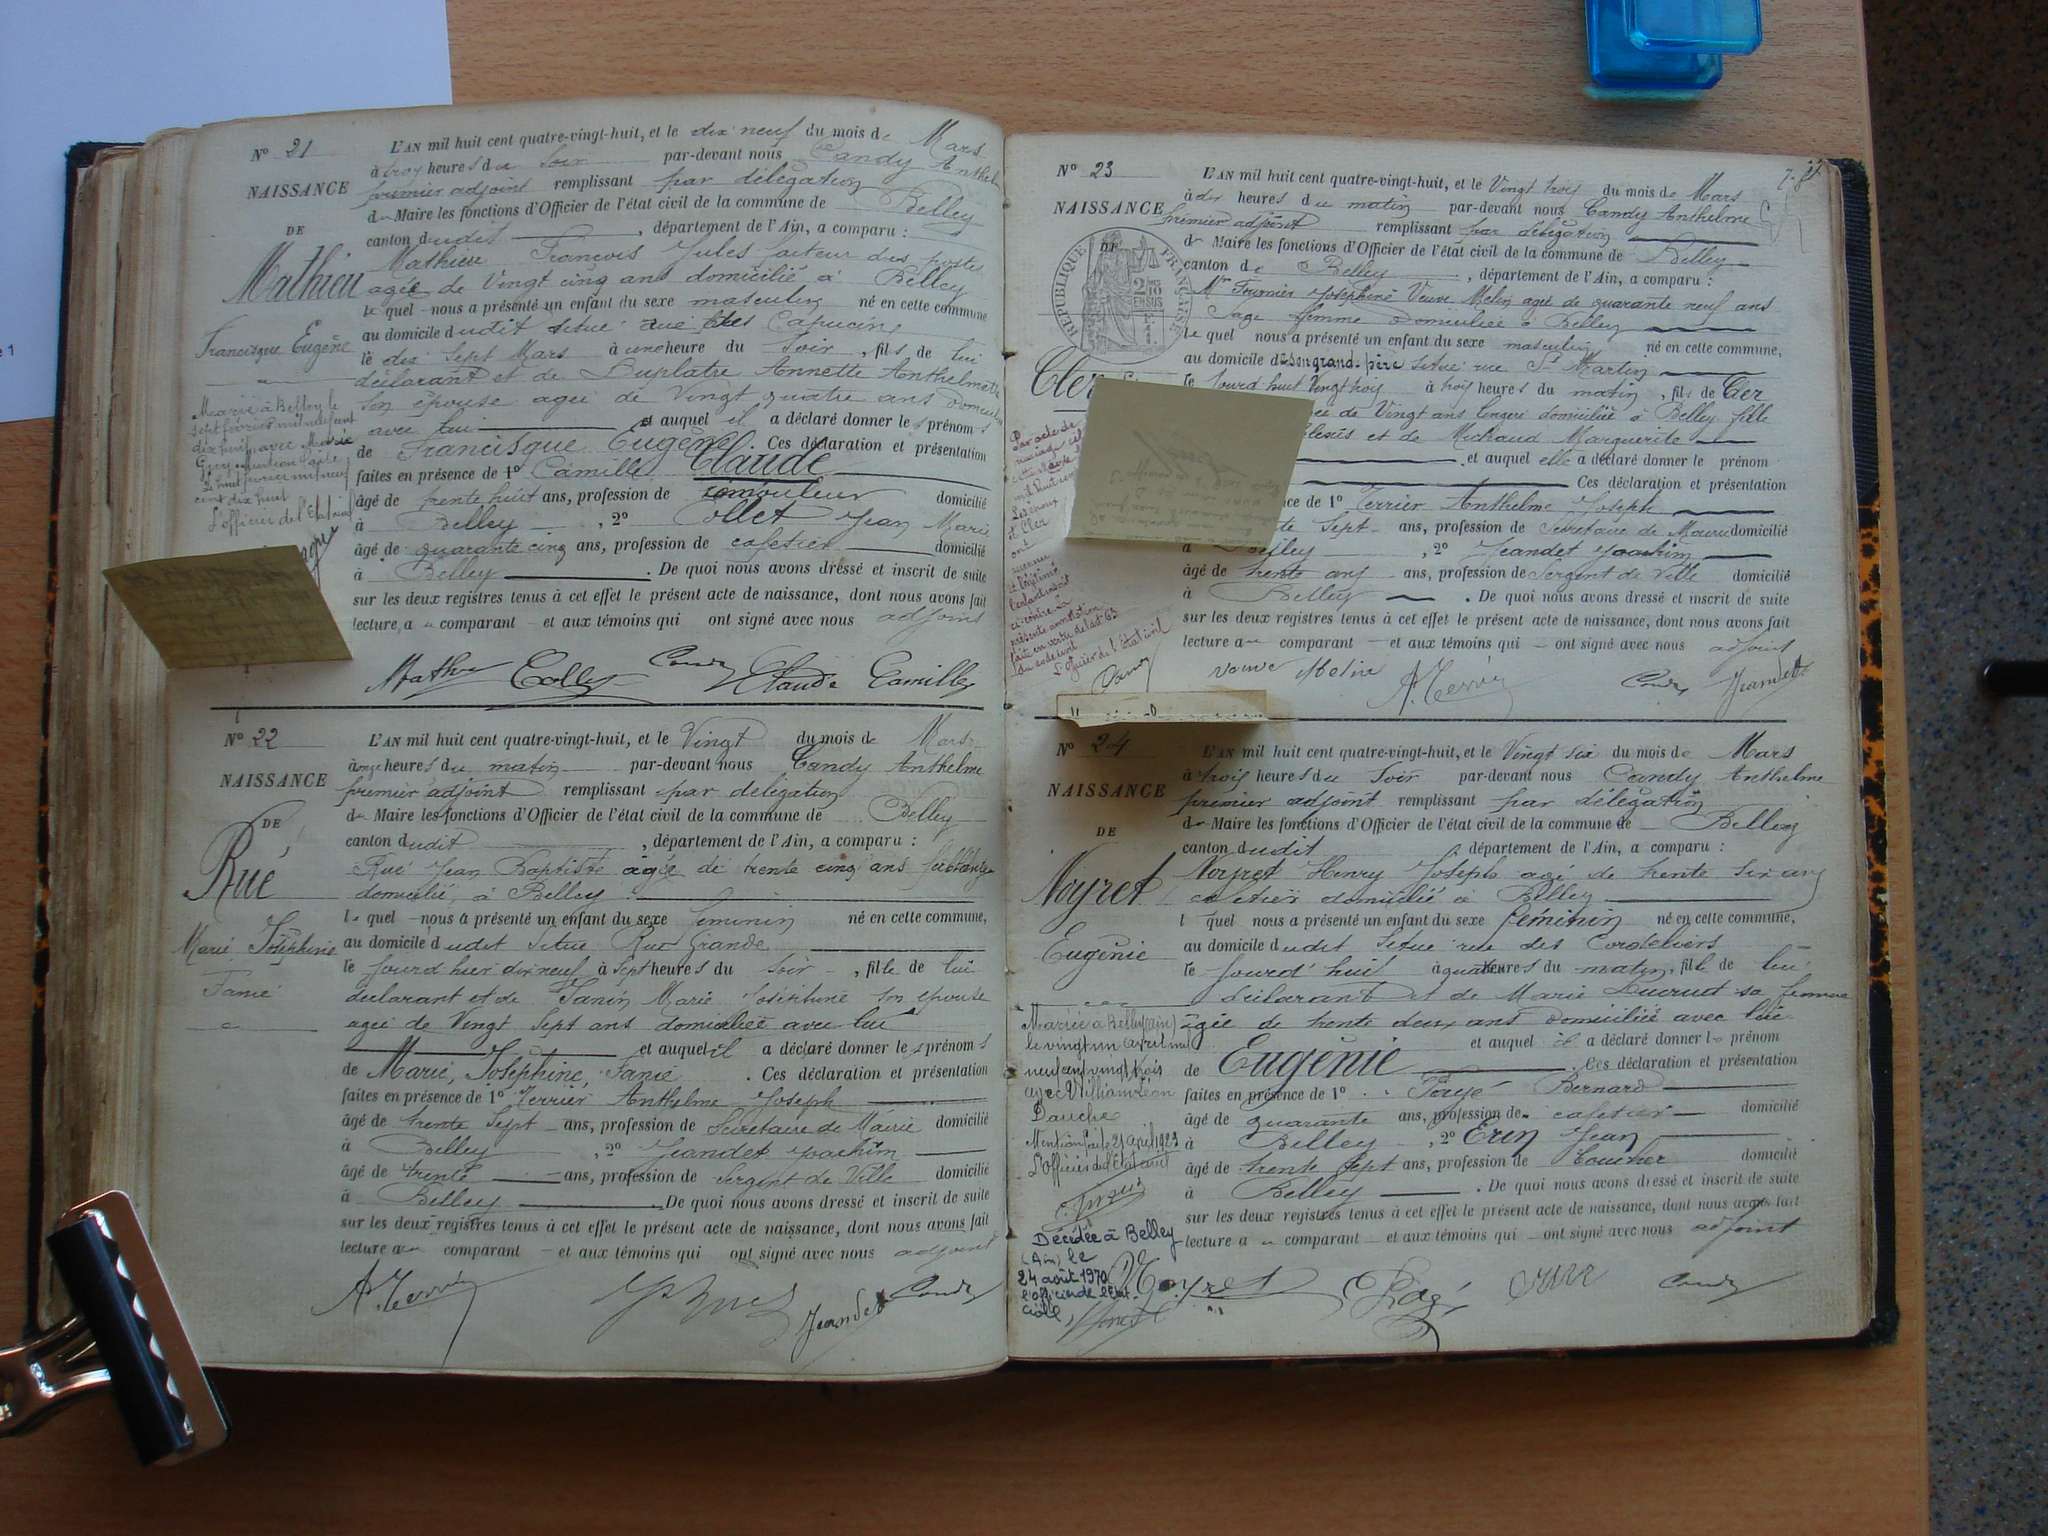 N° 21
NAISSANCE
DE
Mathieu
Francisque Eugène
Marié à Belley le
sept février mil neuf cent
dix huit avec Marie
L'officier de l'Etat civil
L'AN mil huit cent quatre-vingt-huit, et le dix neuf du mois de Mars
à trois heures du soir par-devant nous Candy Anthelme
premier adjoint remplissant par délégation
du Maire les fonctions d'Officier de l'état civil de la commune de Belley
canton dudit, département de l'Ain, a comparu :
Mathieu François Jules facteur des postes
agée de Vingt cinq ans domicilié à Belley
lequel nous a présenté un enfant du sexe masculin né en cette commune
au domicile dudit situé rue des Capucins
le dix sept Mars à une heure du soir, fils de lui
déclarant et de Duplatre Annette Anthelmette
son épouse agée de Vingt quatre ans domiciliée
avec lui et auquel il a déclaré donner les prénoms
de Francisque Eugène. Ces déclaration et présentation
faites en présence de 1° Camille Claude
âgé de trente huit ans, profession de émouleur domicilié
à Belley, 2° Collet Jean Marie
âgé de quarante cinq ans, profession de cafetier domicilié
à Belley. De quoi nous avons dressé et inscrit de suite
sur les deux registres tenus à cet effet le présent acte de naissance, dont nous avons fait
lecture au comparant et aux témoins qui ont signé avec nous adjoint
Mathieu Collet Candy Claude Camille
N° 22
NAISSANCE
DE
Rué
Marie Joséphine
Fanie
L'AN mil huit cent quatre-vingt-huit, et le Vingt du mois de Mars
à onze heures du matin par-devant nous Candy Anthelme
premier adjoint remplissant par délégation
du Maire les fonctions d'Officier de l'état civil de la commune de Belley
canton dudit, département de l'Ain, a comparu :
Rué Jean Baptiste agée de trente cinq ans ferblantier
domicilié, à Belley
lequel nous a présenté un enfant du sexe féminin né en cette commune,
au domicile dudit situé Rue Grande
le jourd hier dix neuf à sept heures du soir, fille de lui
déclarant et de Janin Marie Joséphine son épouse
agée de Vingt sept ans domiciliée avec lui
et auquel il a déclaré donner les prénoms
de Marie, Joséphine, Fanie. Ces déclaration et présentation
faites en présence de 1° Terrier Anthelme Joseph
âgé de trente sept ans, profession de Secrétaire de Mairie domicilié
à Belley, 2° Jeandet Joachim
âgé de trente ans, profession de Sergent de Ville domicilié
à Belley. De quoi nous avons dressé et inscrit de suite
sur les deux registres tenus à cet effet le présent acte de naissance, dont nous avons fait
lecture au comparant et aux témoins qui ont signé avec nous adjoint
A. Terrier Jeandet Candy
N° 23
NAISSANCE
DE
RÉPUBLIQUE FRANÇAISE
2 10 EN SUS
Cler
Par acte de
mariage
Les époux
Cler
ont
reconnu
et légitimé
l'enfant inscrit
ci-contre. La
présente annotation
faite en vertu de l'art 63
du code civil
L'officier de l'état civil
Candy
L'AN mil huit cent quatre-vingt-huit, et le Vingt trois du mois de Mars
à dix heures du matin par-devant nous Candy Anthelme
premier adjoint remplissant par délégation
du Maire les fonctions d'Officier de l'état civil de la commune de Belley
canton de Belley, département de l'Ain, a comparu :
Me Fournier Joséphine Veuve Melin agée de quarante neuf ans
Sage femme domiciliée à Belley
lequel nous a présenté un enfant du sexe masculin né en cette commune,
au domicile de son grand-père situé rue St Martin
le jourd huit Vingt trois à trois heures du matin, fils de Cler
de Vingt ans lingère domiciliée à Belley fille
et de Michaud Marguerite
et auquel elle a déclaré donner le prénom
Ces déclaration et présentation
de 1° Terrier Anthelme Joseph
sept ans, profession de Secrétaire de Mairie domicilié
à Belley, 2° Jeandet Joachim
âgé de trente ans ans, profession de Sergent de Ville domicilié
à Belley. De quoi nous avons dressé et inscrit de suite
sur les deux registres tenus à cet effet le présent acte de naissance, dont nous avons fait
lecture au comparant et aux témoins qui ont signé avec nous adjoint
veuve Melin A. Terrier Candy Jeandet
N° 24
NAISSANCE
DE
Noyret
Eugénie
Mariée à Belley (ain)
le vingt un avril mil
neuf cent vingt trois
avec William Léon
Dauche
Mention faite 21 avril 1923
L'Officier de l'Etat civil
Décédée à Belley
(Ain) le
24 août 1970
l'officier de l'état
civil
L'AN mil huit cent quatre-vingt-huit, et le Vingt six du mois de Mars
à trois heures du soir par-devant nous Candy Anthelme
premier adjoint remplissant par délégation
du Maire les fonctions d'Officier de l'état civil de la commune de Belley
canton dudit, département de l'Ain, a comparu :
Noyret Henry Joseph agé de trente six ans
cafetier domicilié à Belley
l quel nous a présenté un enfant du sexe féminin né en cette commune,
au domicile dudit situé rue des Cordeliers
le jourd'huit à quatre heures du matin, fille de lui
déclarant et de Marie Ducruet sa femme
agée de trente deux ans domiciliée avec lui
et auquel il a déclaré donner le prénom
de Eugénie. Ces déclaration et présentation
faites en présence de 1° Foryé Bernard
âgé de quarante ans, profession de cafetier domicilié
à Belley, 2° Eren Jean
âgé de trente sept ans, profession de boucher domicilié
à Belley. De quoi nous avons dressé et inscrit de suite
sur les deux registres tenus à cet effet le présent acte de naissance, dont nous avons fait
lecture au comparant et aux témoins qui ont signé avec nous adjoint
Noyret Candy